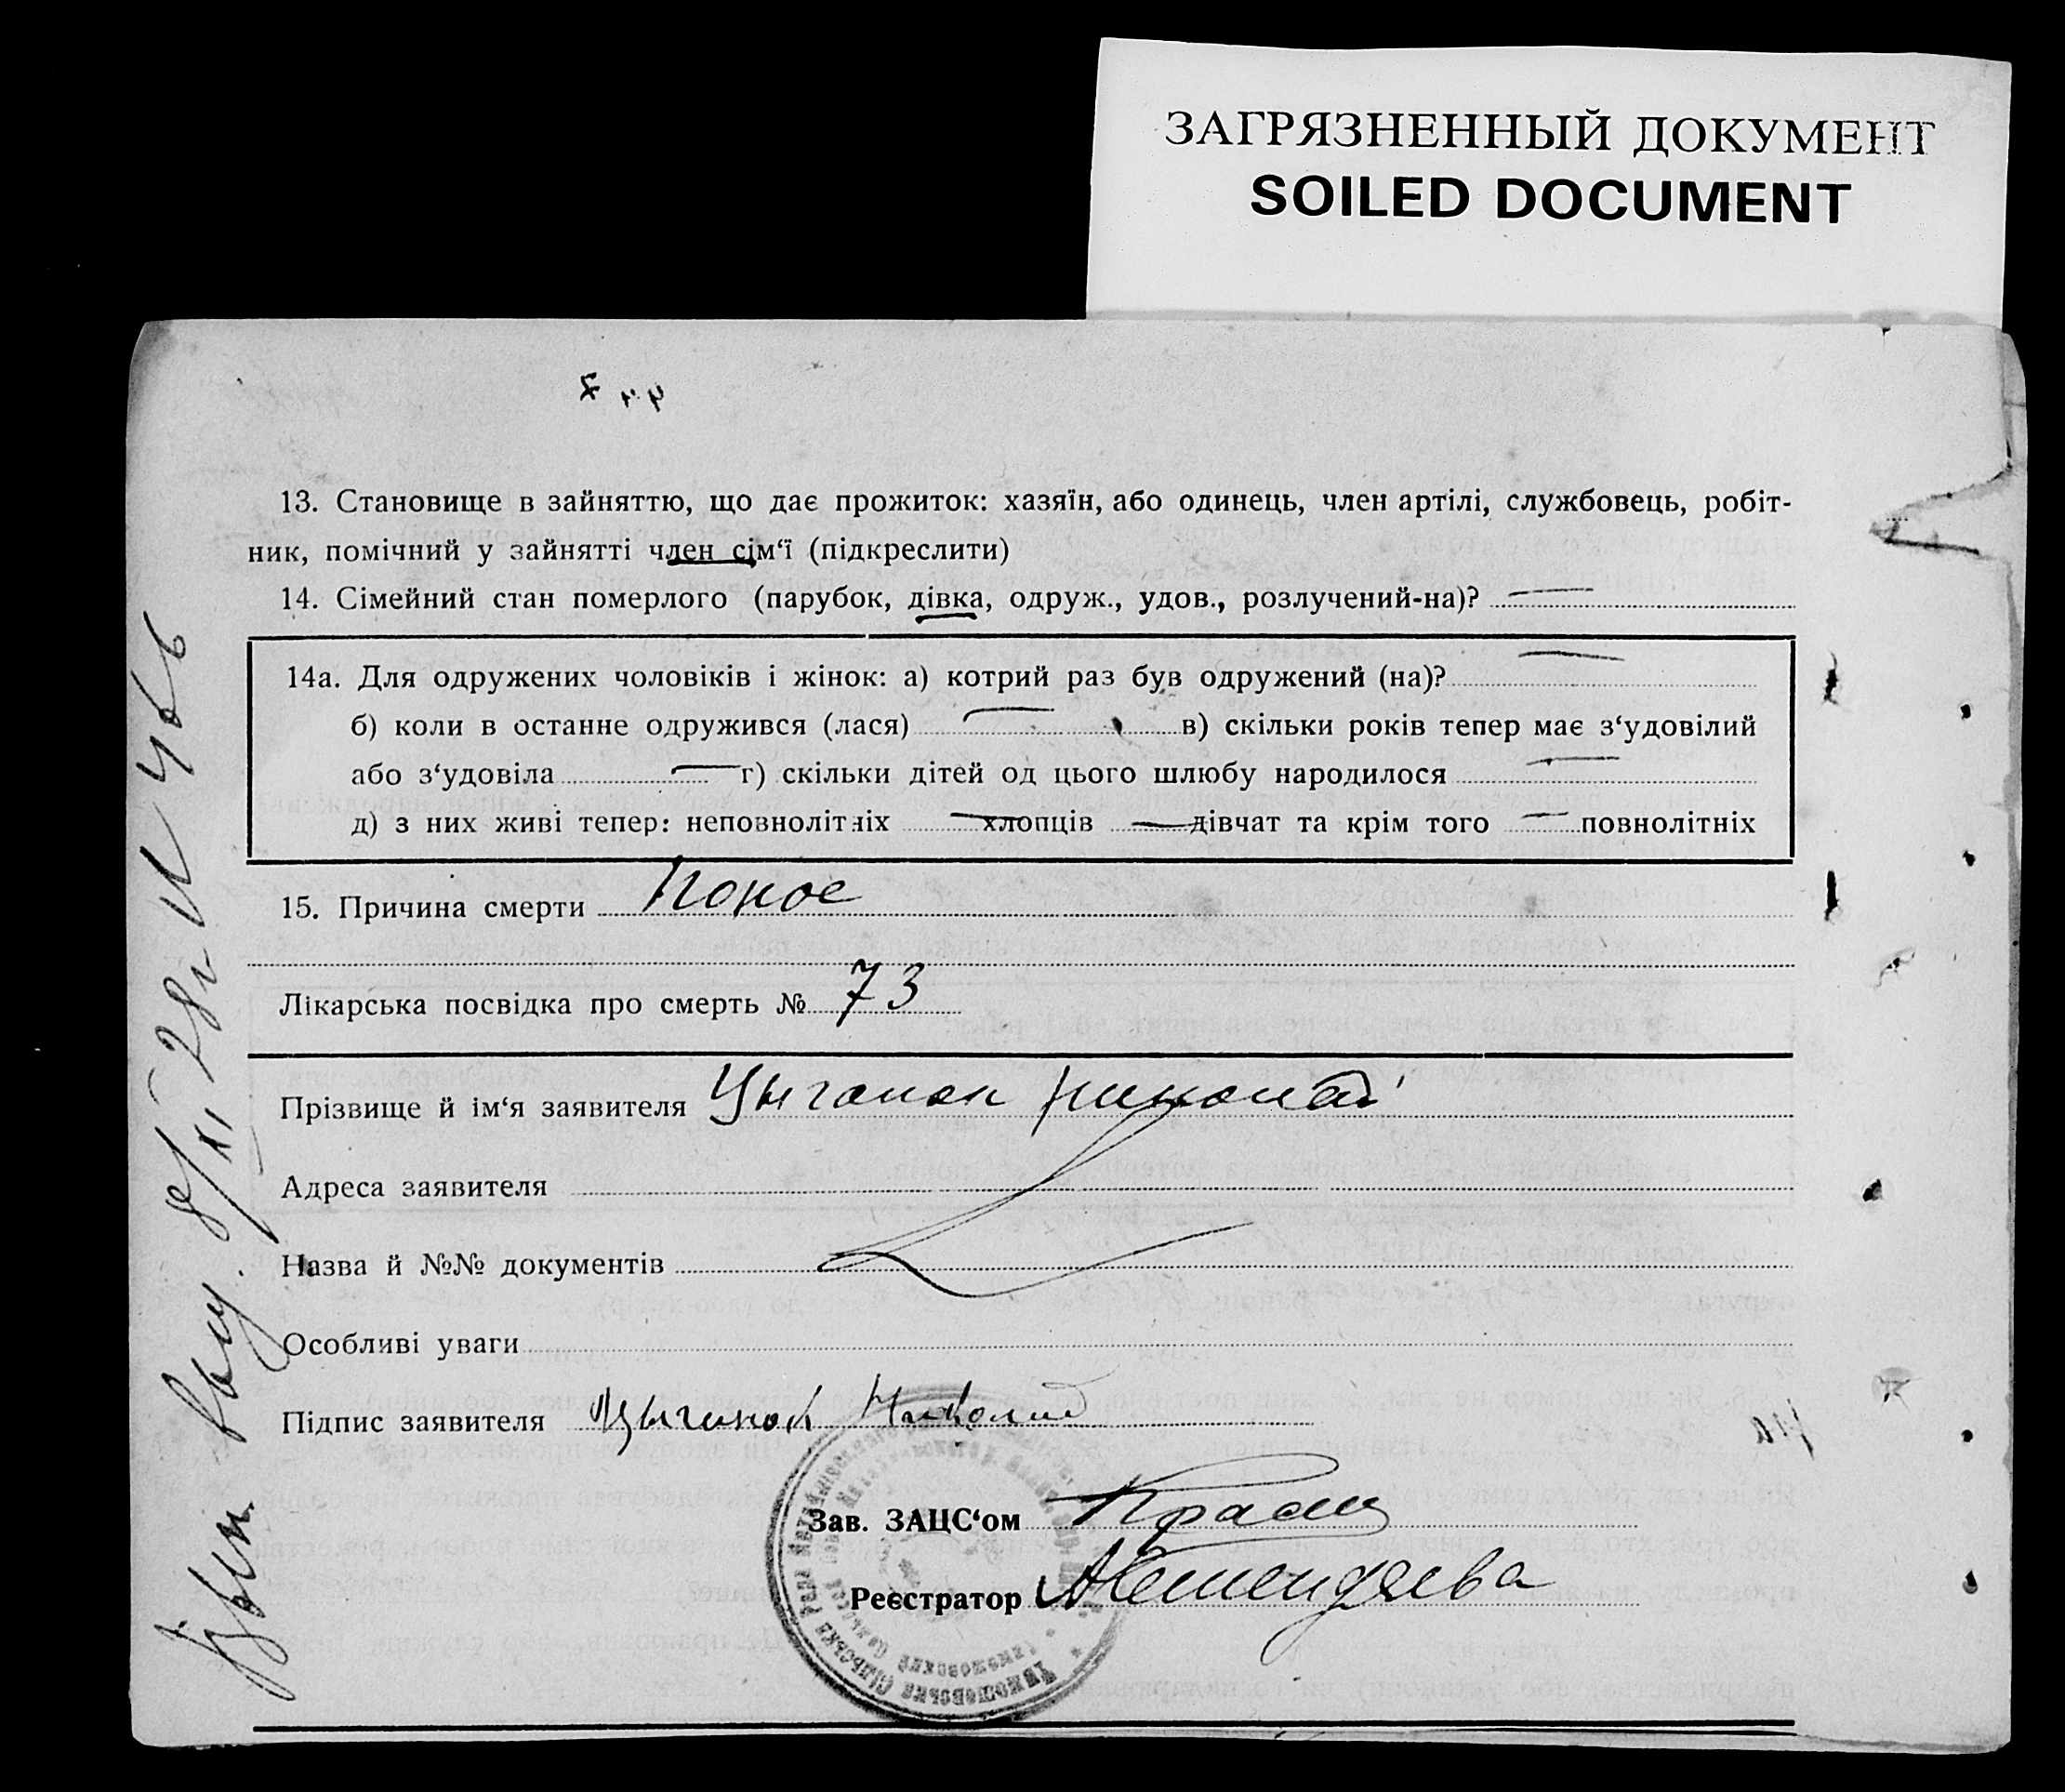 ЗАГРЯЗНЕННЫЙ ДОКУМЕНТ
SOILED DOCUMENT
13. Становище в зайняттю, що дає прожиток: хазяїн, або одинець, член артілі, службовець, робіт-
ник, помічний у зайнятті член сім‘ї (підкреслити)
14. Сімейний стан померлого (парубок, дівка, одруж., удов., розлучений-на)?
14а. Для одружених чоловіків і жінок: а) котрий раз був одружений (на)?
б) коли в останне одружився (лася) в) скільки років тепер має з‘удовілий
або з‘удовіла г) скільки дітей од цього шлюбу народилося
д) з них живі тепер: неповнолітніх хлопців дівчат та крім того повнолітніх
15. Причина смерти Понос
Лікарська посвідка про смерть № 73
Прізвище й ім‘я заявителя Цыганок Николай
Адреса заявителя
Назва й №№ документів
Особливі уваги
Підпис заявителя Цыганок Николай
Зав. ЗАЦС‘ом
Реєстратор
8/XI 28г.